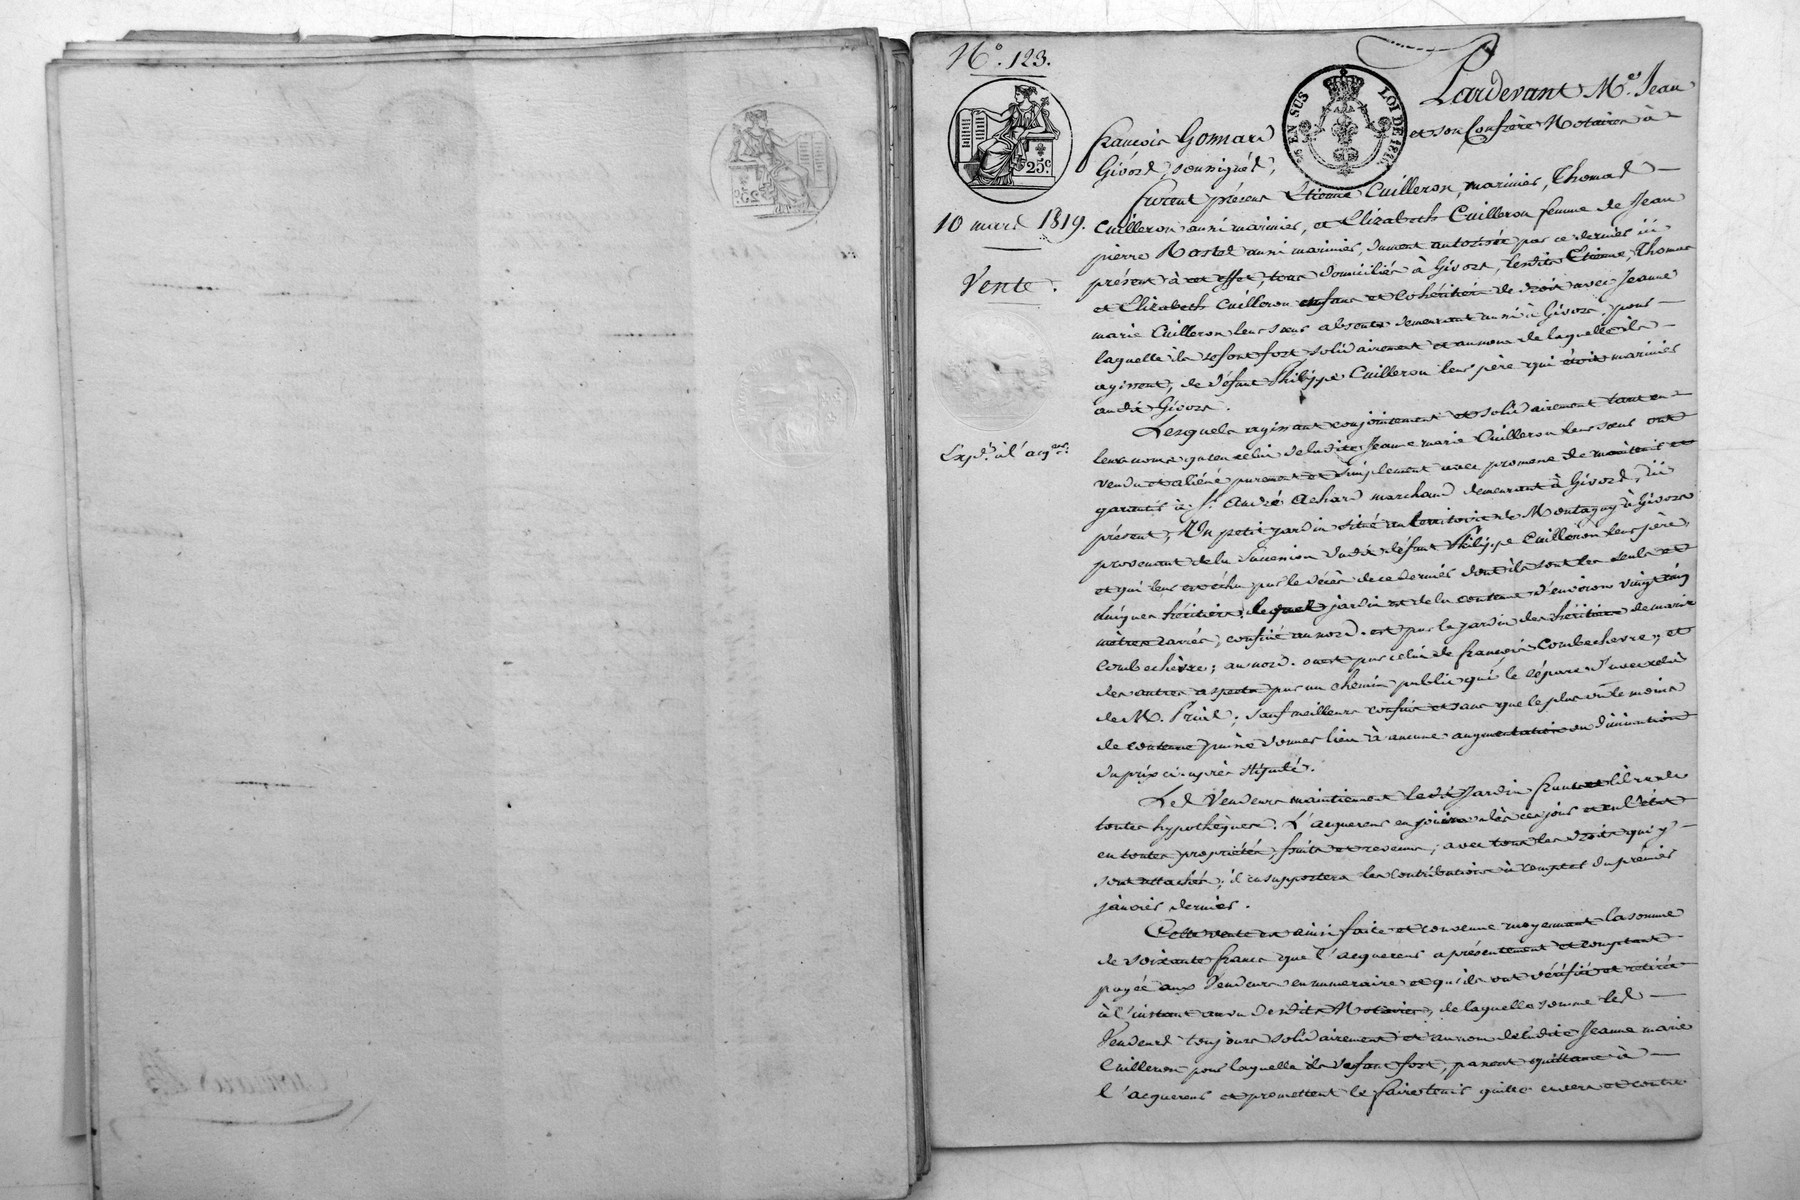 N.º 123.
25.c
EN SUS LOI DE 1816
10 mars 1819.
Vente.
Expd. à l'acqer.
Pardevant Me. Jean
françois Gonnard et son Confrère Notaires à
Givors, soussignés,
Furent présens Etienne Cuilleron, marinier, Thomas
Cuilleron aussi marinier, et Elizabeth Cuilleron femme de Jean
pierre Rostod aussi marinier, dument autorisée par ce dernier ici
présent à cet effet, tous domiciliés à Givors, lesdits Etienne, Thomas
et Elizabeth Cuilleron enfans et cohéritiers de droit avec Jeanne
marie Cuilleron leur sœur absente demeurant aussi à Givors, pour
laquelle ils se font fort solidairement et au nom de laquelle ils
agissent, de défunt Philippe Cuilleron leur père qui étoit marinier
audit Givors.
Lesquels agissant conjointement et solidairement tant en
leurs noms qu'en celui de ladite Jeanne marie Cuilleron leur sœur ont
vendu et aliéné purement et simplement avec promesse de maintenir et
garantir à Sr. André Achard marchand demeurant à Givors, ici
présent, Un petit jardin situé au territoire de Montagny à Givors
provenant de la Succession dudit défunt Philippe Cuilleron leur père,
et qui leur est échu par le décès de ce dernier dont ils sont les seuls et
uniques héritiers, lequel jardin est de la contenue d'environ vingt cinq
mètres carrés, confiné au nord-est par le jardin des héritiers de marie
Combechèvre; au nord-ouest par celui de françois Combechevre, et
des autres aspects par un chemin public qui le sépare d'avec celui
de M. Prive; sauf meilleurs confins et sans que le plus ou le moins
de contenue puisse donner lieu à aucune augmentation ou diminution
du prix ci-après stipulé.
Les Vendeurs maintiennent ledit Jardin franc et libre de
toutes hypothèques. L'acquereur en jouira dès ce jour et en l'état
en toutes propriétés, fruits et revenus, avec tous les droits qui y
sont attachés; il en supportera les contributions à compter du prémier
janvier dernier.
Cette vente est ainsi faite et convenue moyennant la somme
de soixante francs que l'acquereur a présentement et comptant
payée aux Vendeurs en numeraire et qu'ils ont vérifiée et retirée
à l'instant au vu desdits Notaires, de laquelle somme les
Vendeurs toujours solidairement et au nom de ladite Jeanne marie
Cuilleron pour laquelle ils se font fort, passent quittance à
l'acquereur et promettent le faire tenir quitte envers et contre